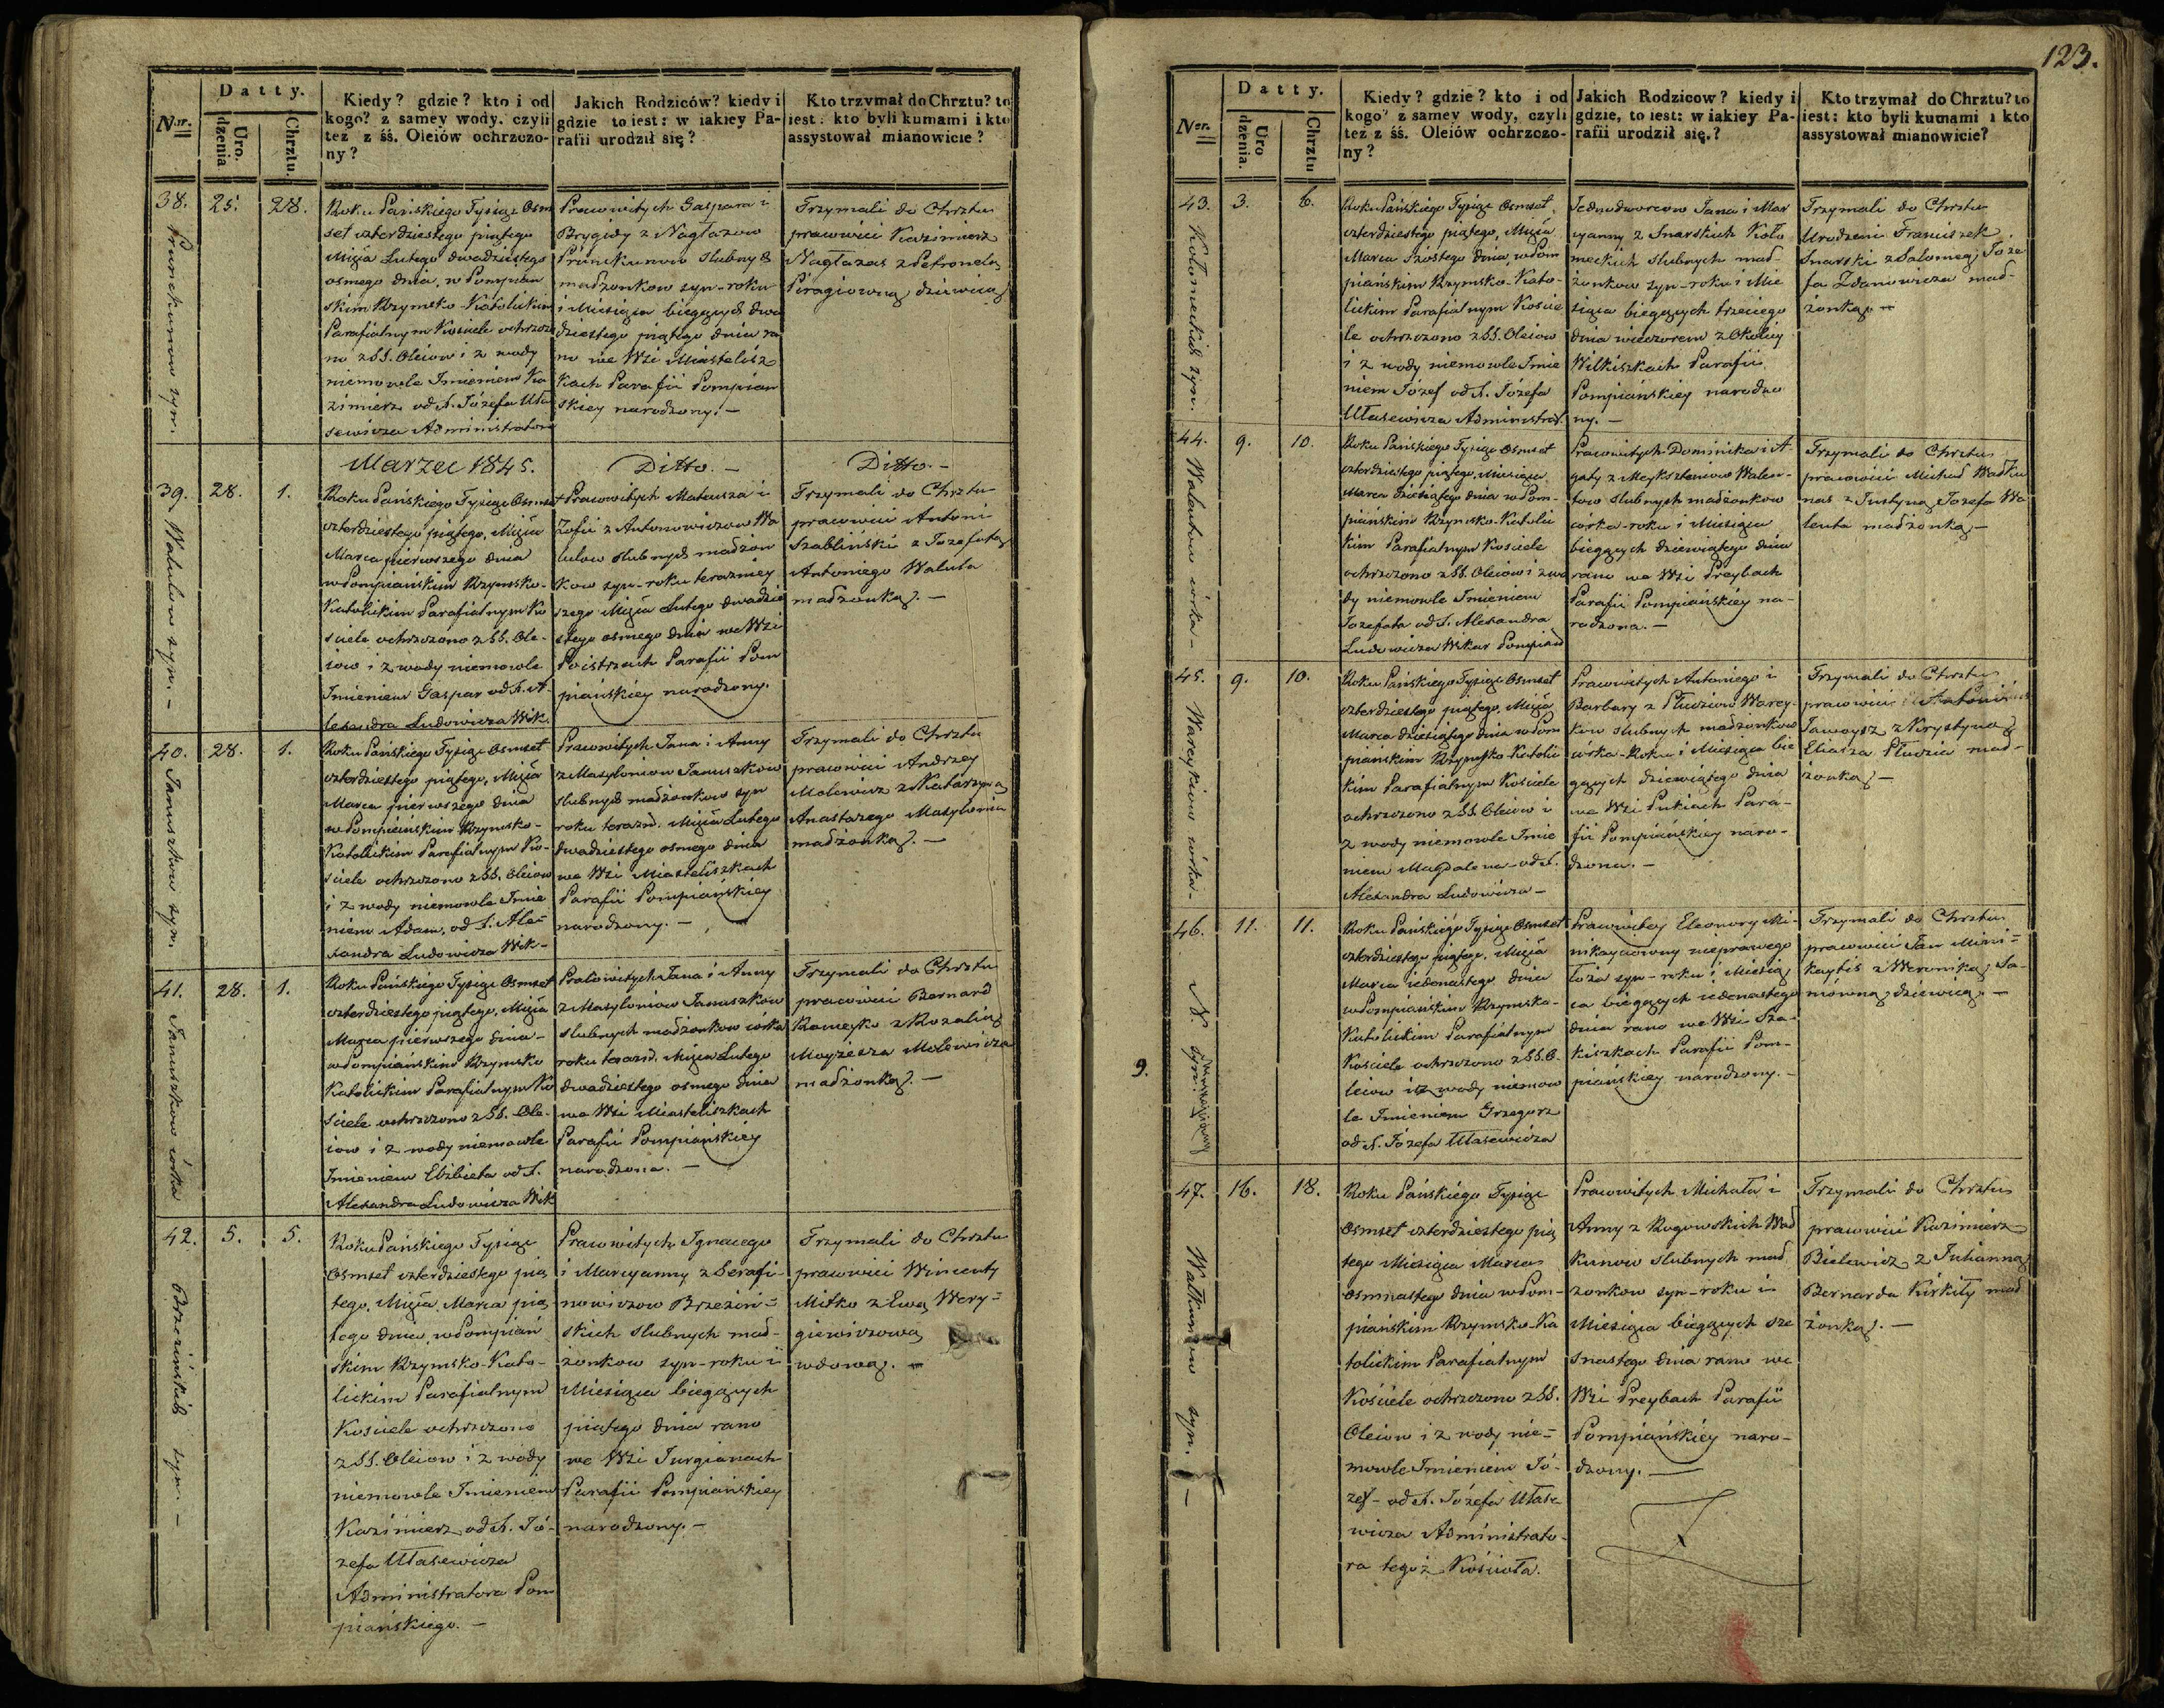 Datty.
Ner.
Uro.
dzenia.
Chrztu.
Kiedy? gdzie? kto i od
kogo? z samey wody. czyli
też z śś. Oleiów ochrzczo-
ny?
Jakich Rodziców? kiedy i
gdzie to iest: w iakiey Pa-
rafii urodził się?
Kto trzymał do Chrztu? to
iest: kto byli kumami i kto
assystował mianowicie?
38.
syn.
25.
28.
Roku Pańskiego Tysiąc Osm
set czterdziestego piątego
Msca Lutego dwadziestego
osmego dnia, w Pompian
skim Rzymsko-Katolickim
Parafialnym Kosciele ochrzczo
no z SS. Oleiow i z wody
niemowle Imieniem Ka
zimierz od X. Józefa Uła
sewicza Administratora
Prawowitych Gaspara i
Brygidy z Nagłazow
Prunckunow slubnych
małżonkow syn - roku
i Miesiąca bieżących dwa
dziestego piątego dnia ra
no we Wsi Miastelisz
kach Parafii Pompian
skiey narodzony. -
Trzymali do Chrztu
prawowici Kazimierz
Nagłazas z Petronelą
Piragiowną dziewicą
Marzec 1845.
Ditto. -
Ditto. -
39.
Walulow syn. -
28.
1.
Roku Pańskiego Tysiąc Osmset
czterdziestego piątego, Msca
Marca pierwszego dnia
w Pompiańskim Rzymsko-
Katolickim Parafialnym Ko
sciele ochrzczono z SS. Ole-
iow i z wody niemowle
Imieniem Gaspar od X. A-
lexandra Ludowicza Wik.
Prawowitych Mateusza i
Zofii z Antonowiczow Wa
lulow slubnych małżon
kow syn - roku teraźniey
szego Msca Lutego dwadzie
stego osmego dnia we Wsi
Poistrach Parafii Pom
piańskiey narodzony.
Trzymali do Chrztu
prawowici Antoni
Szabliński z Jozefatą
Antoniego Walula
małżonką. -
40.
Januszkow syn.
28.
1.
Roku Pańskiego Tysiąc Osmset
czterdziestego piątego, Msca
Marca pierwszego dnia
w Pompiańskim Rzymsko-
Katolickim Parafialnym Ko-
sciele ochrzczono z SS. Oleiow
i z wody niemowle Imie
niem Adam, od X. Ale-
xandra Ludowicza Wik-
Prawowitych Jana i Anny
z Masyloniow Januszkow
slubnych małżonkow syn
roku teraźn. Msca Lutego
dwadziestego osmego dnia
we Wsi Miasteliszkach
Parafii Pompiańskiey
narodzony. -
Trzymali do Chrztu
prawowici Andrzey
Molewicz z Katarzyną
Anastazego Masylonia
małżonką. -
41.
Januszkow córka
28.
1.
Roku Pańskiego Tysiąc Osmset
czterdziestego piątego, Msca
Marca pierwszego dnia -
w Pompiańskim Rzymsko
Katolickim Parafialnym Ko
sciele ochrzczono z SS. Ole-
iow i z wody niemowle
Imieniem Elżbieta od X.
Alexandra Ludowicza Wik
Prawowitych Jana i Anny
z Masyloniow Januszkow
slubnych małżonkow córka
roku teraźn. Msca Lutego
dwadziestego osmego dnia
we Wsi Miasteliszkach
Parafii Pompiańskiey
narodzona. -
Trzymali do Chrztu
prawowici Bernard
Rameyko z Rozalią
Moyżesza Molewicza
małżonką. -
42.
Brzezińskich syn. -
5.
5.
Roku Pańskiego Tysiąc
Osmset czterdziestego pią
tego, Msca Marca pią
tego dnia, w Pompiań
skim Rzymsko-Kato-
lickim Parafialnym
Kosciele ochrzczono
z SS. Oleiow i z wody
niemowle Imieniem
Kazimierz od X. Jó-
zefa Ułasewicza
Administratora Pom
piańskiego. -
Prawowitych Ignacego
i Maryanny z Serafi-
nowiczow Brzeziń-
skich slubnych mał-
żonkow syn - roku i
Miesiąca bieżących
piątego dnia rano
we Wsi Jurgianach
Parafii Pompiańskiey
narodzony. -
Trzymali do Chrztu
prawowici Wincenty
Mitko z Ewą Wery-
giewiczową
wdową. -
123.
Datty.
Ner.
Uro
dzenia.
Chrztu
Kiedy? gdzie? kto i od
kogo? z samey wody, czyli
też z śś. Oleiów ochrzczo-
ny?
Jakich Rodzicow? kiedy i
gdzie, to iest: w iakiey Pa-
rafii urodził się.?
Kto trzymał do Chrztu? to
iest: kto byli kumami i kto
assystował mianowicie?
43.
Kołomeckich syn.
3.
6.
Roku Pańskiego Tysiąc Osmset
czterdziestego piątego, Msca
Marca Szóstego dnia, w Pom
piańskim Rzymsko-Kato-
lickim Parafialnym Koscie
le ochrzczono z SS. Oleiow
i z wody niemowle Imie
niem Józef od X. Józefa
Ułasewicza Administrat.
Jednodworcow Jana i Mar
yanny z Snarskich Koło
meckich slubnych mał-
żonkow syn - roku i Mie
siąca bieżących trzeciego
dnia wieczorem z Okolicy
Wilkiszkach Parafii
Pompiańskiey narodzo
ny. -
Trzymali do Chrztu
Urodzeni Franciszek
Snarski z Salomeą Józe
fa Zdanowicza mał-
żonką. -
44.
Walentow córka -
9.
10.
Roku Pańskiego Tysiąc Osmset
czterdziestego piątego, Miesiąca
Marca dziesiątego dnia w Pom-
piańskim Rzymsko-Katolic
kim Parafialnym Kosciele
ochrzczono z SS. Oleiow i z wo
dy niemowle Imieniem
Jozefata od X. Alexandra
Ludowicza Wikar Pompiań
Prawowitych Dominika i A
gaty z Meykszteniow Walen-
tow slubnych małżonkow
córka - roku i Miesiąca
bieżących dziewiątego dnia
rano we Wsi Preybach
Parafii Pompiańskiey na-
rodzona. -
Trzymali do Chrztu
prawowici Michał Wałku
nas z Justyną Jozefa Wa
lenta małżonką. -
45.
córka -
9.
10.
Roku Pańskiego Tysiąc Osmset
czterdziestego piątego, Msca
Marca dziesiątego dnia w Pom
piańskim Rzymsko-Katolic
kim Parafialnym Kosciele
ochrzczono z SS. Oleiow i
z wody niemowle Imie
niem Magdalena - od X.
Alexandra Ludowicza -
Prawowitych Antoniego i
Barbary z Płudziow Warey-
kow slubnych małżonkow
córka - Roku i Miesiąca bie
żących dziewiątego dnia
we Wsi Pukiach Para-
fii Pompiańskiey naro-
dzona. -
Trzymali do Chrztu
prawowici
Jawoysz z Krystyną
Eliasza Płudzia mał-
żonką. -
46.
9.
N. syn
11.
11.
Roku Pańskiego Tysiąc Osmset
czterdziestego piątego, Msca
Marca iedenastego dnia
w Pompiańskim Rzymsko-
Katolickim Parafialnym
Kosciele ochrzczono z SS. O-
leiow i z wody niemow
le Imieniem Grzegorz
od X. Józefa Ułasewicza
Prawowitey Eleonory Mi-
nikayciowny nieprawego
łoża syn - roku i Miesią
ca bieżących iedenastego
dnia rano we Wsi Sza-
kiszkach Parafii Pom-
piańskiey narodzony. -
Trzymali do Chrztu
prawowici Jan Mini-
kaytis z Weroniką Ja-
nówną dziewicą. -
47.
Wałkunow syn. -
16.
18.
Roku Pańskiego Tysiąc
Osmset czterdziestego pią
tego Miesiąca Marca
Osmnastego dnia w Pom-
piańskim Rzymsko-Ka
tolickim Parafialnym
Kościele ochrzczono z SS.
Oleiow i z wody nie-
mowle Imieniem Jó-
zef - od X. Józefa Ułase
wicza Administrato-
ra tegoż Kościoła.
Prawowitych Michała i
Anny z Rogowskich Wał
kunow slubnych mał
żonkow syn - roku i
Miesiąca bieżących sze
snastego dnia rano we
Wsi Preybach Parafii
Pompiańskiey naro-
dzony. -
Trzymali do Chrztu
prawowici Kazimierz
Bielewicz z Julianną
Bernarda Kirkiły mał
żonką. -